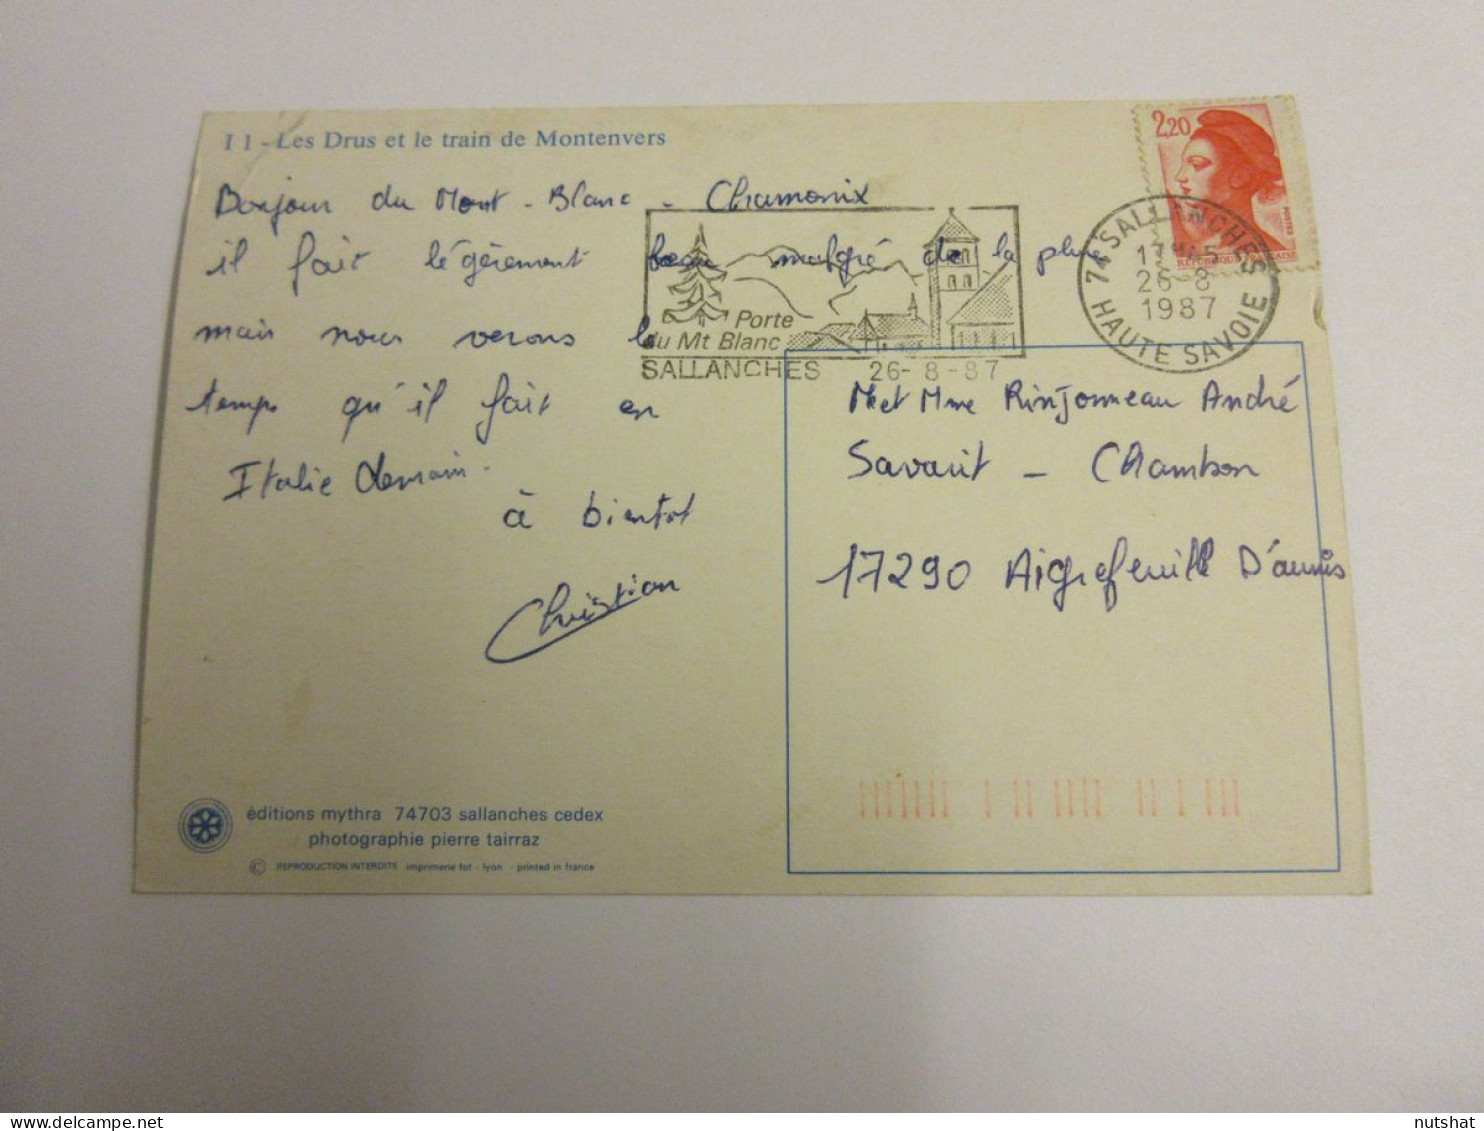 I 1 - Les Drus et le train de Montenvers
Bonjour du Mont-Blanc - Chamonix
il fait légèrement beau malgré de la pluie
mais nous verons le
temps qu'il fait en
Italie demain.
à bientot
Christian
2,20
POSTES
RÉPUBLIQUE FRANÇAISE
74 SALLANCHES
26-8
1987
HAUTE SAVOIE
Porte
du Mt Blanc
SALLANCHES 26-8-87
M et Mme Rinjonneau André
Savarit - Chambon
17290 Aigrefeuille D'aunis
éditions mythra 74703 sallanches cedex
photographie pierre tairraz
© REPRODUCTION INTERDITE imprimerie fot - lyon - printed in france
nutshat